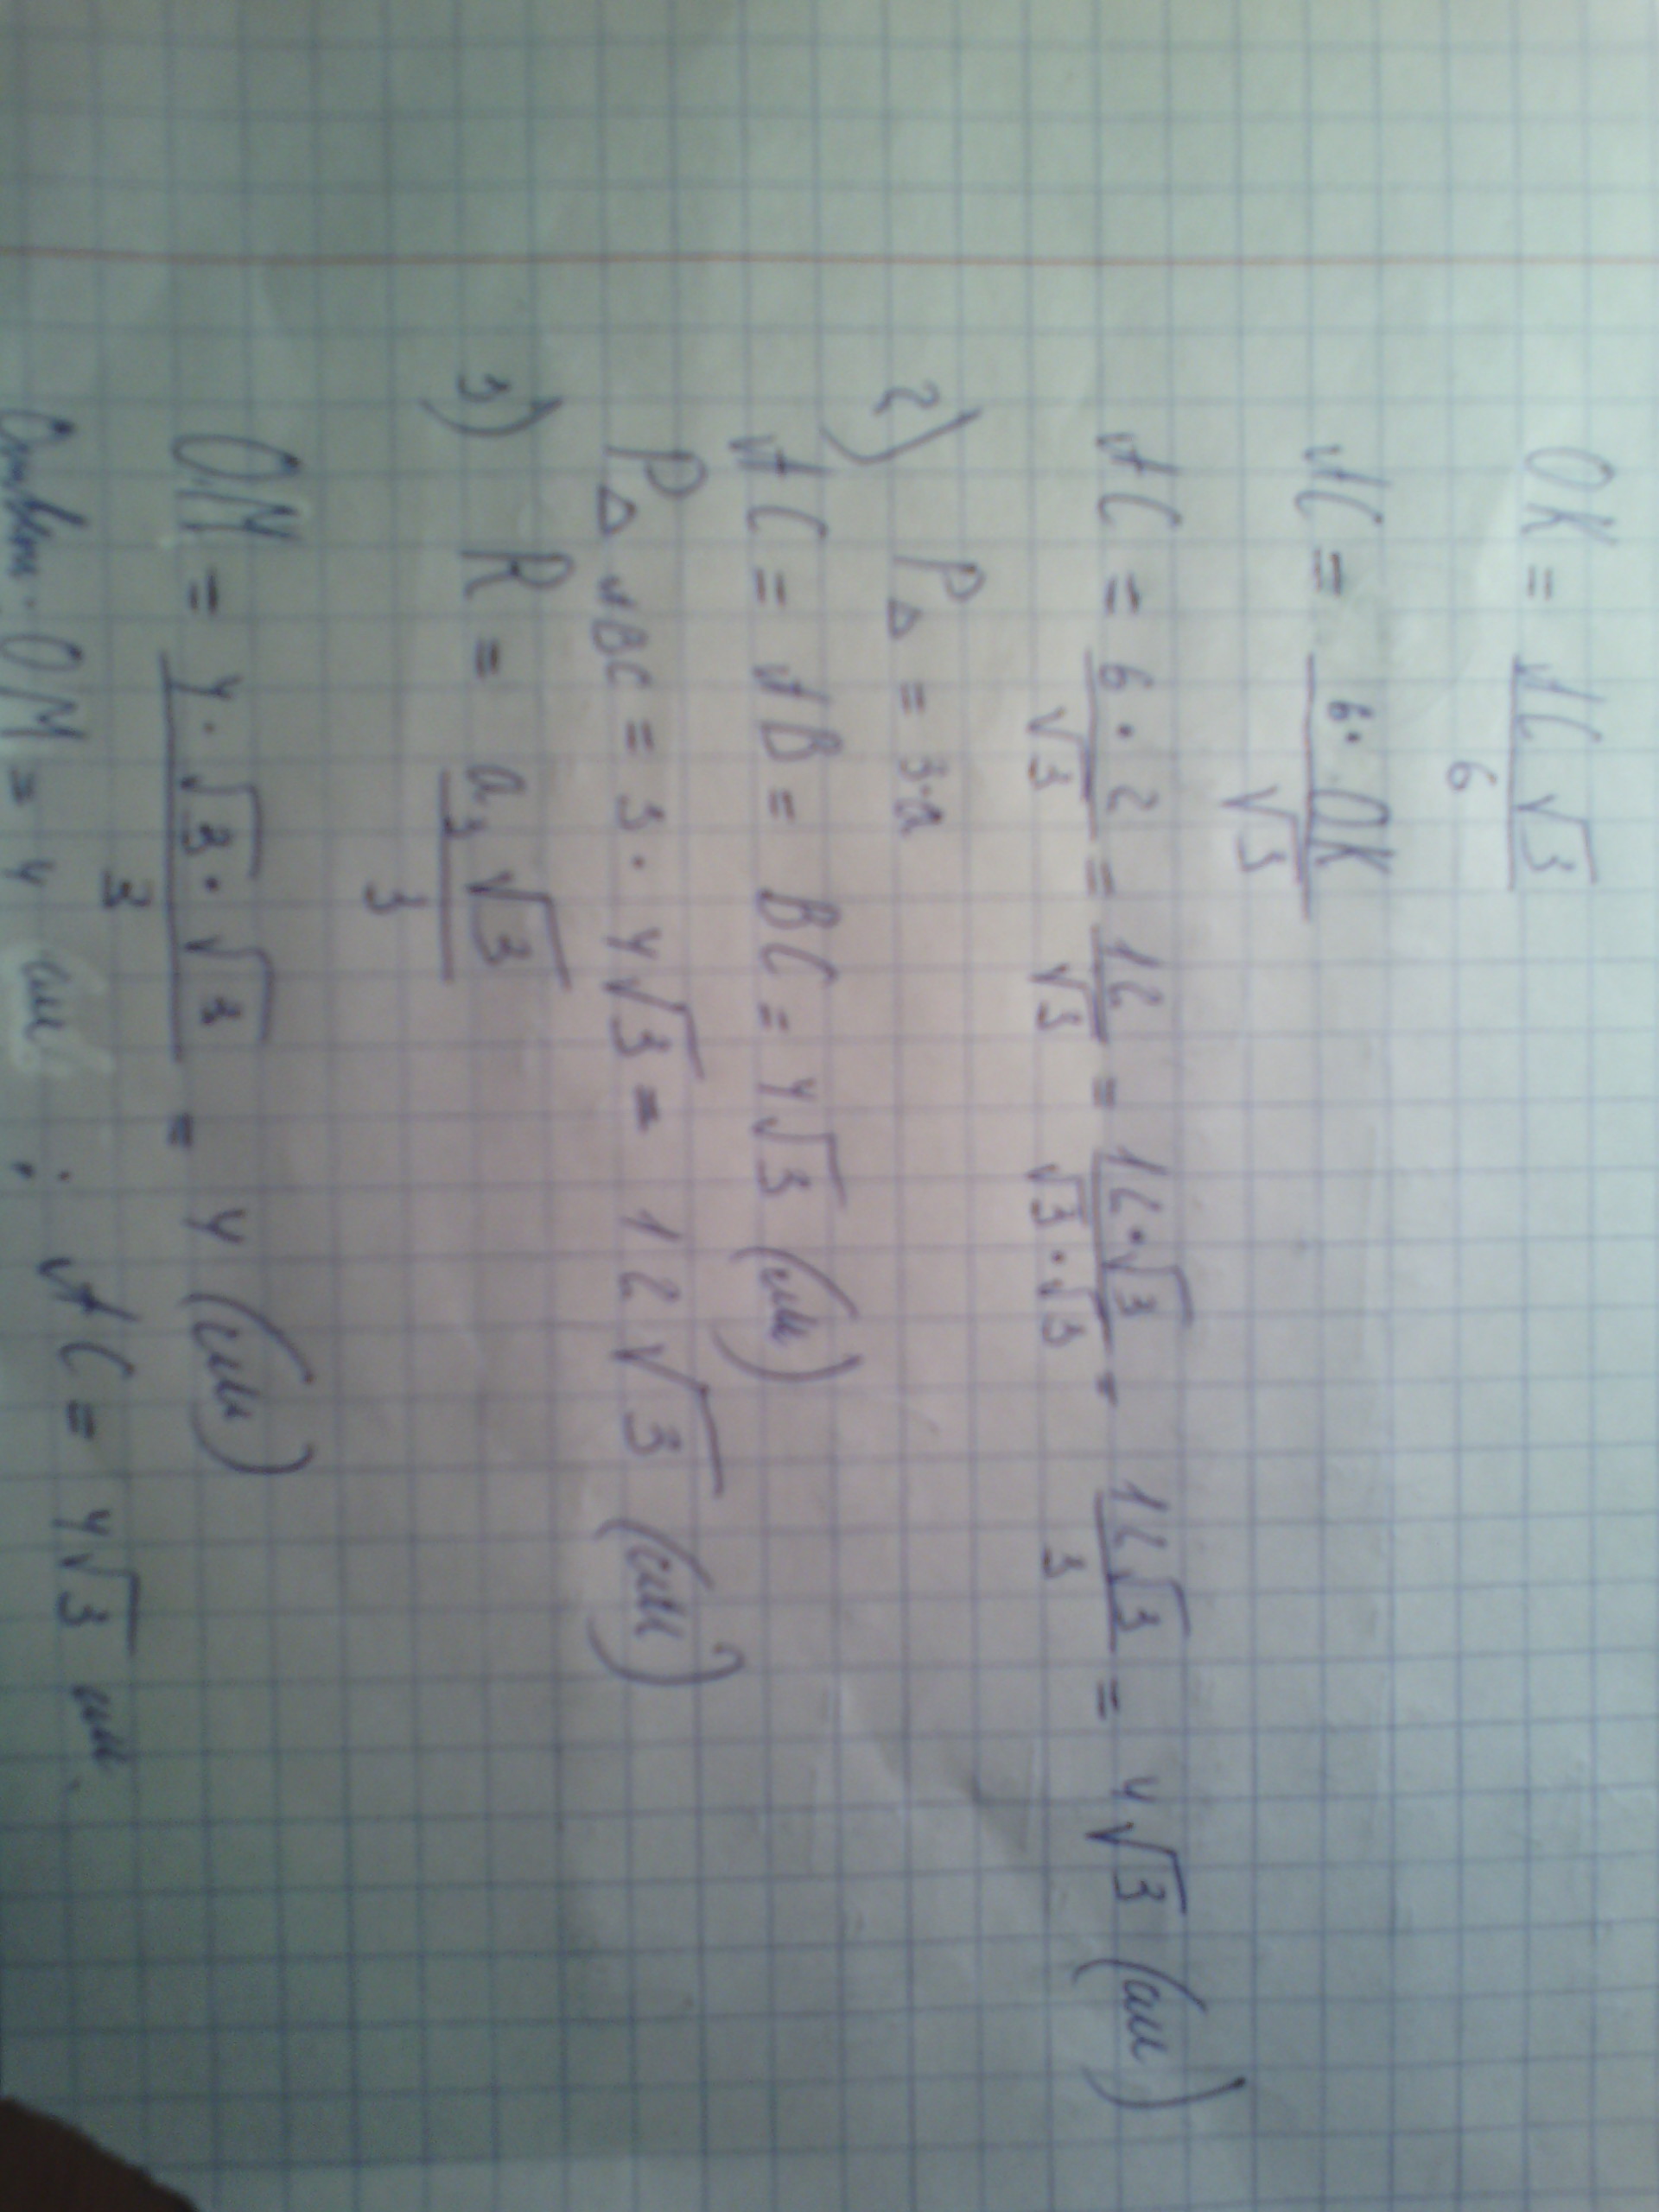 OK = AC√3 / 6
AC = 6 · OK / √3
AC = 6 · 2 / √3 = 12 / √3 = 12 · √3 / √3 · √3 = 12√3 / 3 = 4√3 (см)
2) P△ = 3·a
AC = AB = BC = 4√3 (см)
P△ ABC = 3 · 4√3 = 12√3 (см)
3) R = a₃√3 / 3
OM = 4 · √3 · √3 / 3 = 4 (см)
Ответ: OM = 4 см ; AC = 4√3 см.